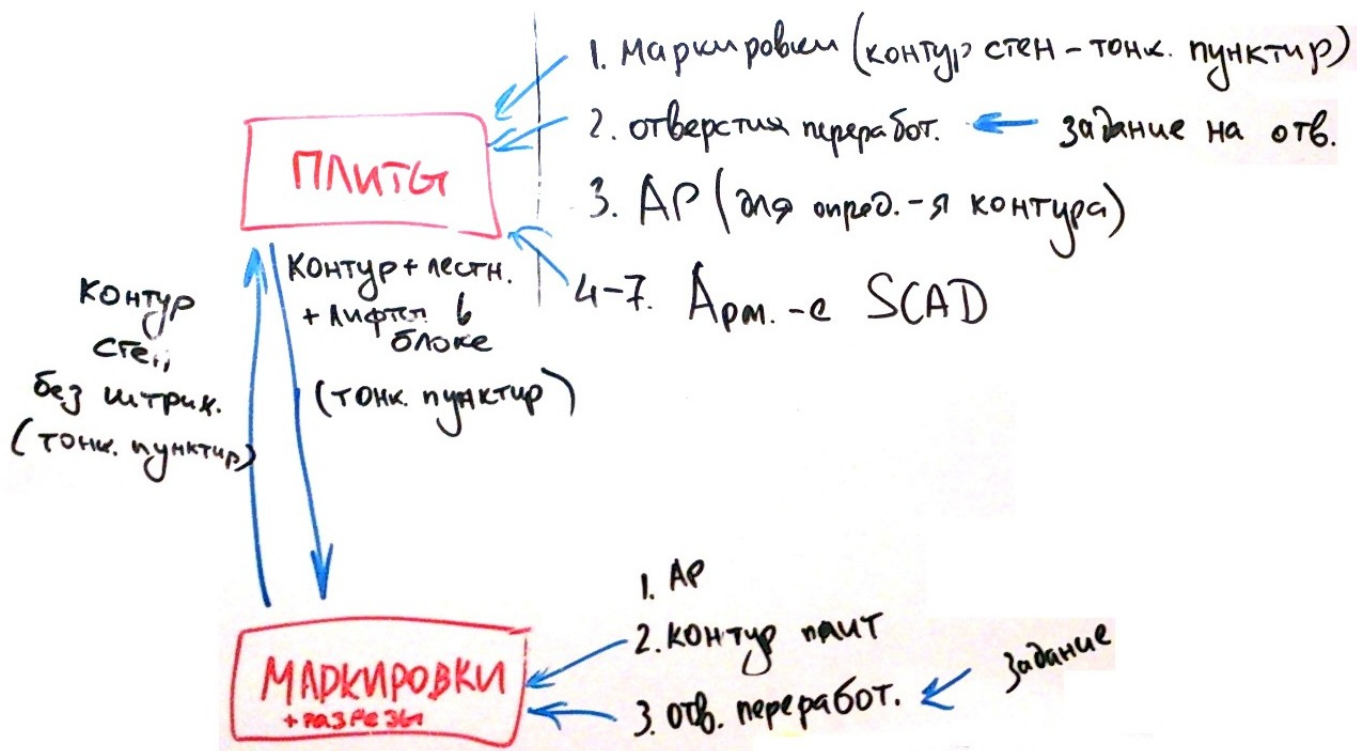 1. Маркировки (контур стен - тонк. пунктир)
2. отверстия переработ. ← задание на отв.
3. АР (для опред.-я контура)
4-7. Арм.-е SCAD
ПЛИТЫ
контур + лестн.
+ лифтел. в
блоке
(тонк. пунктир)
контур
стен
без штрих.
(тонк. пунктир)
1. АР
2. контур плит
3. отв. переработ. ← задание
МАРКИРОВКИ
+ РАЗРЕЗЫ